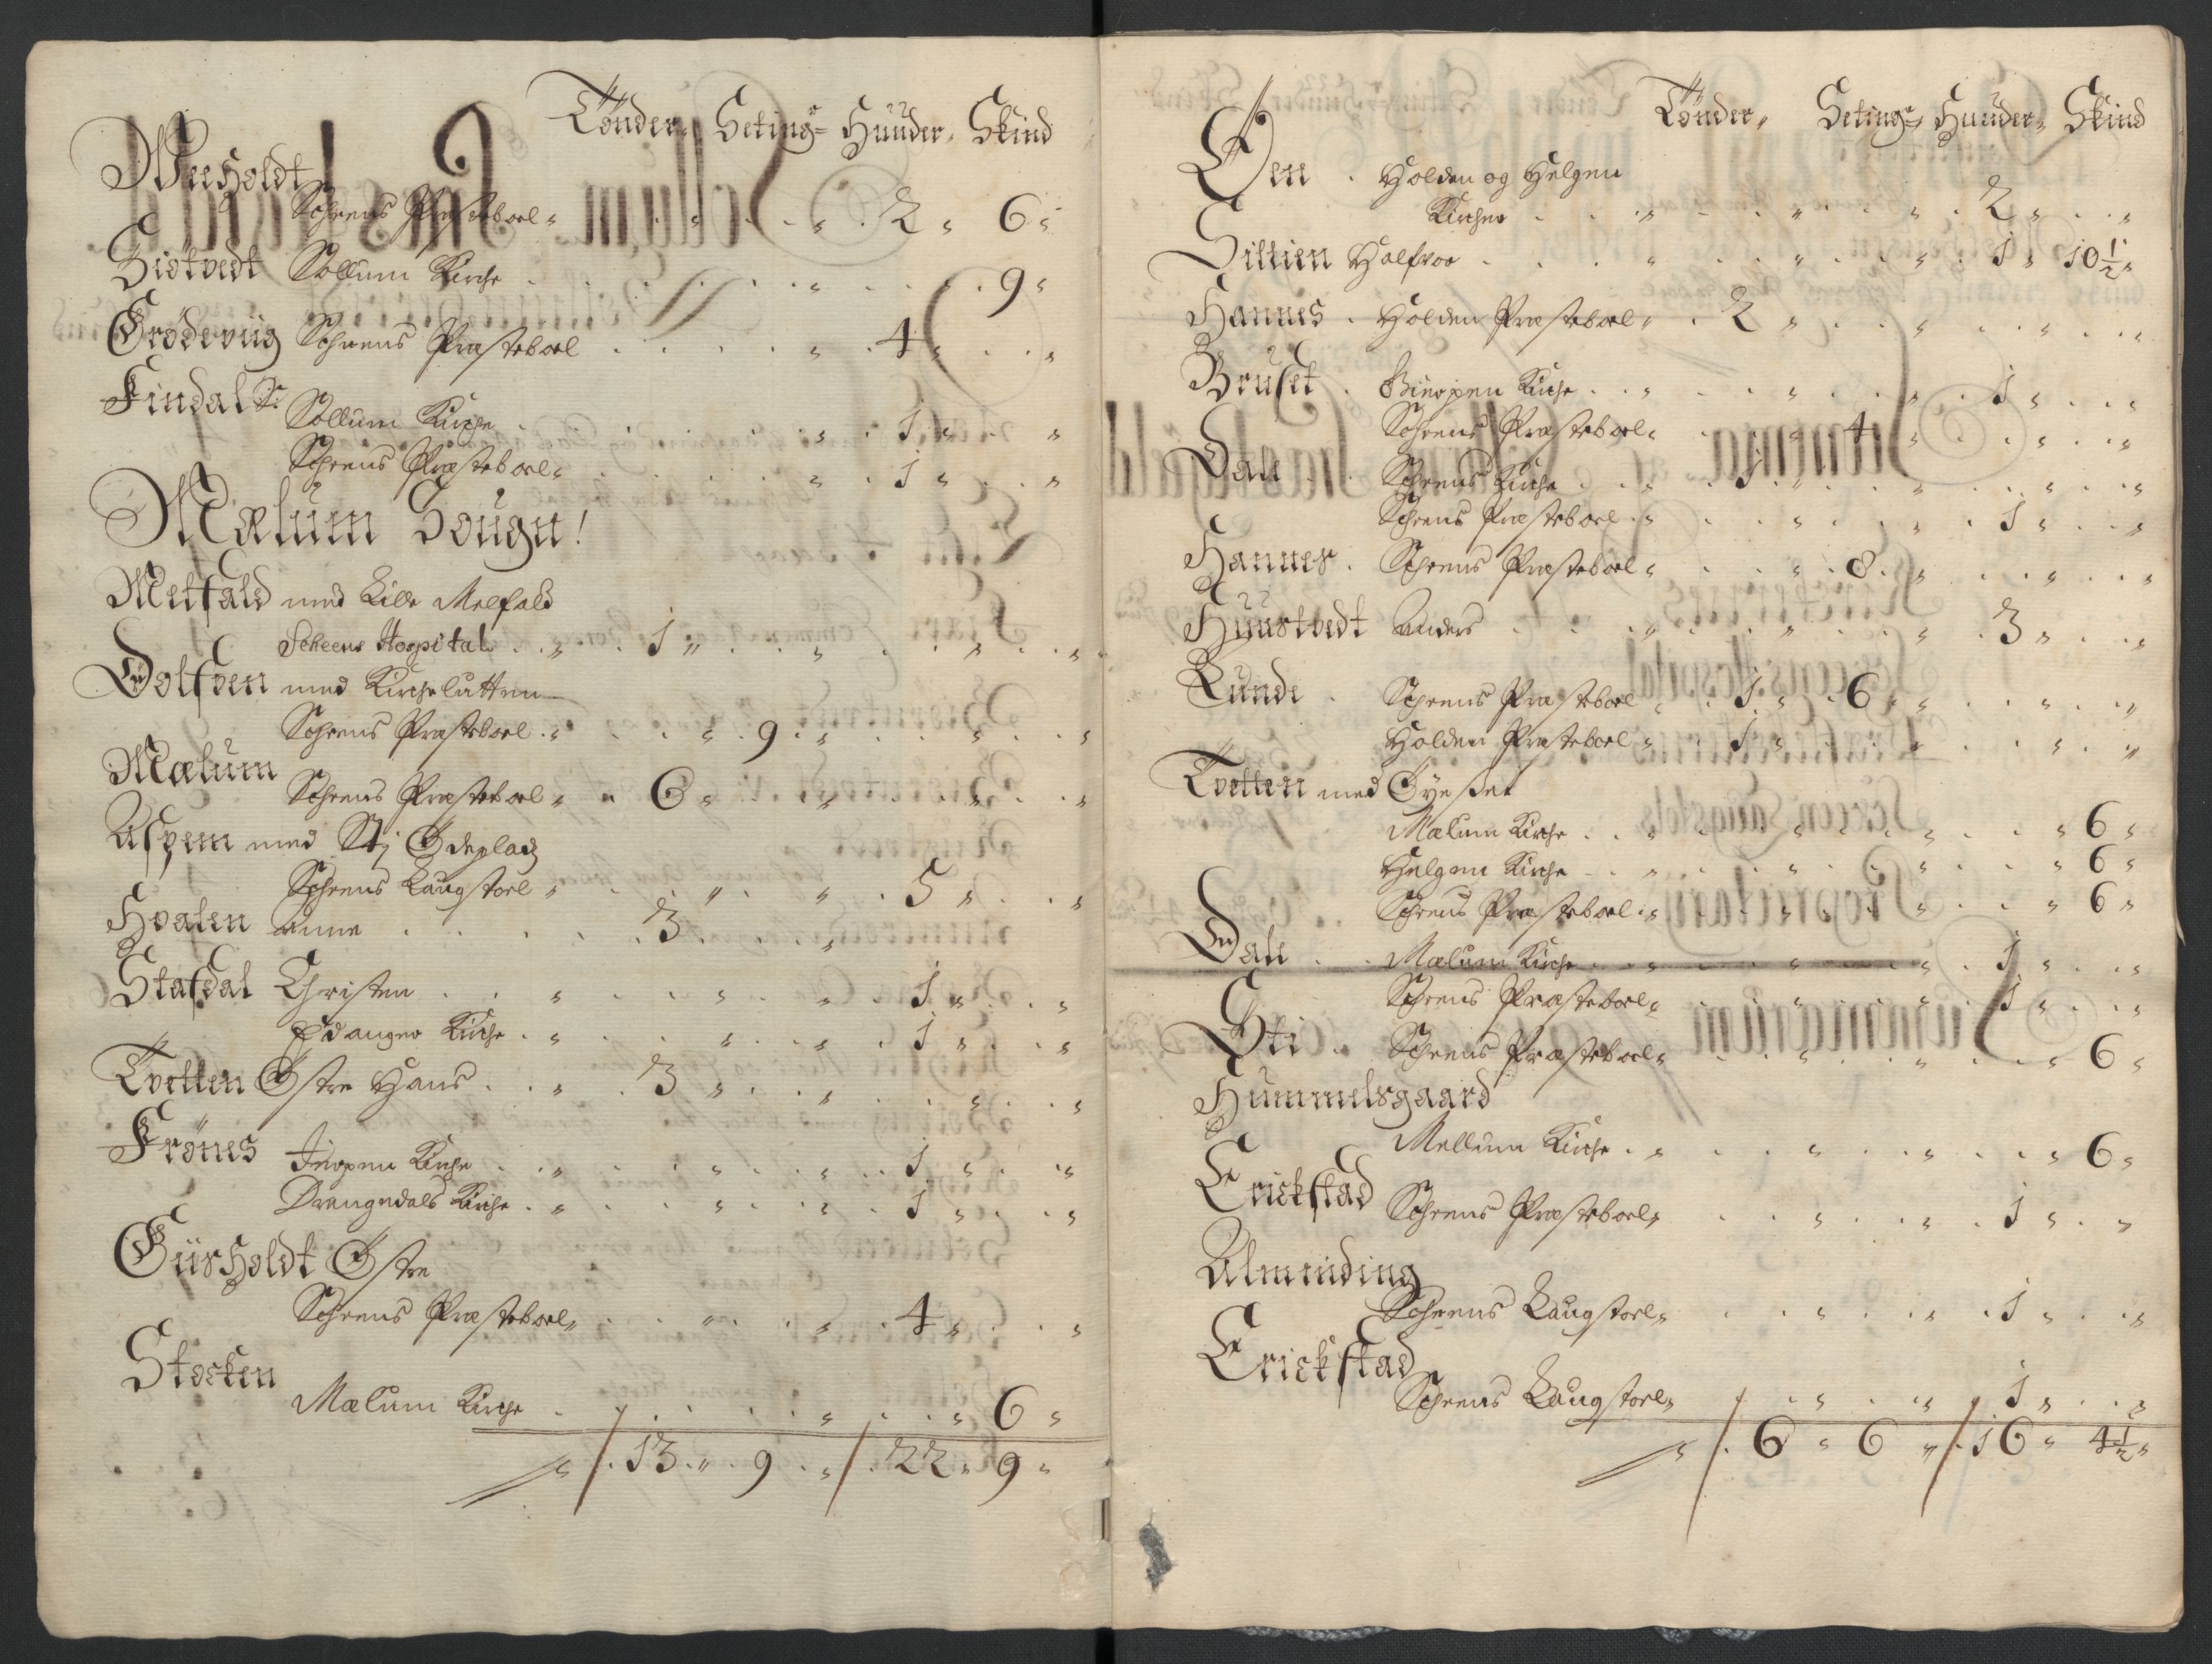 Tönder„ Seting= Huuder„ Skind
Meeholdt
Scheens Præsteboel„ . . „ . . „ . 2 „ 6„
Siötvedt Sollum Kirche . . . . . „ . . . 9„
Grödeviig Scheens Præsteboel . . . . „ . 4„ . . „
Findal
Sollum Kirche . . . . . „ . 1„ . . „
Scheens Præsteboel„ . . . . „ . 1„ . . „
Mælum Sougn!
Melfald med Lille Melfald
Scheens Hospital . . „ . 1„ . . „ . . „ . . „
Dolfven med Kirchelutten
Scheens Præsteboel . „ . . „ 9 . „ . . „ . . „
Mælum
Scheens Præsteboel „ . 6„ . . „ . . „ . . „
Aspem med Sti Ödeplads
Scheens Laugstoel „ . . „ . . „ . 5„ . . „
Hvalen Anne . . . . . 3 . . . „
Stafdal Christen . . „ . . „ . . „ . 1„ . . „
Edanger Kirche . „ . . „ . . „ . 1„ . . „
Tvetten Östre Hans . . „ . 3„ . . „ . . „ . . „
Frönes Jerpen Kirche . . „ . . „ . . „ . 1„ . . „
Drangedals Kirche . „ . . „ . . „ . 1„ . . „
Giisholdt Östre
Scheens Præsteboel„ . . „ . . „ . 4„ . . „
Stocken
Mælum Kirche . . . . . „ . . „ 6„
„ . 13„ 9 . „ . 22„ 9„
Tönder„ Seting„ Huuder„ Skind
Öen . Holden og Helgen
Kircher . . „ . . „ . . „ . 2„ . . „
Sillien Halfvor . . „ . . „ . . „ . 1„ 10½„
Hannes . Holden Præsteboel„ . 2„ . . „ . . „ . . „
Bruset . Bierpen Kirche . . „ . . „ . . „ . 1„ . . „
Scheens Præsteboel„ . . „ 4 „ . . „ . . „
Dale . . Scheens Kirche . . „ . 1„ . . „ . . „ . . „
Scheens Præsteboel . „ . . „ . . „ . 1„ . . „
Hannes . Scheens Præsteboel„ . . „ . 8 . „ . . „ . . „
Huustvedt Anders . . . „ . . „ . . „ . 3„ . . „
Lunde . Scheens Præsteboel„ . 1„ . 6„ „ . . „ . . „
Holden Præsteboel„ . 1„ . . „ . . „ . . „
Tvetten med Öyeset
Mælum Kirche . . „ . . „ . . „ . . „ 6„
Helgen Kirche . . „ . . „ . . „ . . „ 6„
Scheens Præsteboel . „ . . „ . . „ . . „ 6„
Dale . . Mælum Kirche . . „ . . „ . . „ . 1„ . . „
Scheens Præsteboel„ . . „ . . „ . 1„ . . „
Sti . Scheens Præsteboel„ . . „ . . „ . . „ 6„
Hummelsgaard
Mellum Kirche . „ . . „ . . „ . . „ 6„
Erickstad
Scheens Præsteboel„ . . „ . . „ . 1„ . . „
Alminding
Scheens Laugstoel„ . . „ . . „ . 1„ . . „
Erickstad
Scheens Laugstoel„ . . „ . . „ . 1„ . . „
„ . 6 „ 6 „ . 16„ 4½„